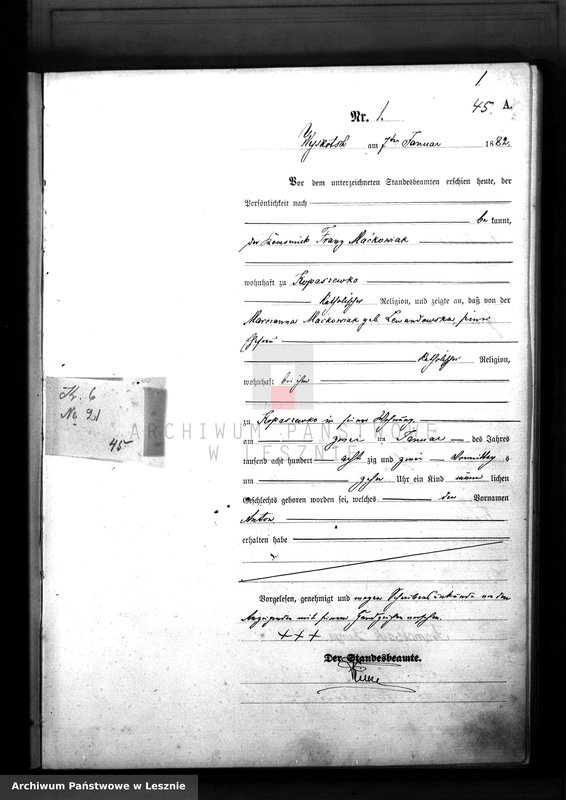 1
45. A.
Nr. 1.
Wyskotsch am 7ten Januar 1882.
Vor dem unterzeichneten Standesbeamten erschien heute, der
Persönlichkeit nach
be kannt,
der Franz Maćkowiak
wohnhaft zu Kopaszewo
katholischer Religion, und zeigte an, daß von der
Marianna Maćkowiak geb. Lewandowska, seiner
Ehefrau
katholischer Religion,
wohnhaft bei ihm
zu Kopaszewo in seiner Wohnung
am zwei ten Januar des Jahres
tausend acht hundert acht zig und zwei Vormittag s
um zehn Uhr ein Kind männ lichen
Geschlechts geboren worden sei, welches den Vornamen
Anton
erhalten habe
Vorgelesen, genehmigt und wegen Schreibensunkunde von dem
Anzeigenden mit seinem Handzeichen versehen.
+++
Der Standesbeamte.
K. 6
No 21
45
ARCHIWUM PAŃSTWOWE
W LESZNIE
Archiwum Państwowe w Lesznie